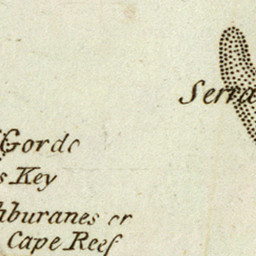 Serra
Gorde
s Key
hburanes or
Cape Reef